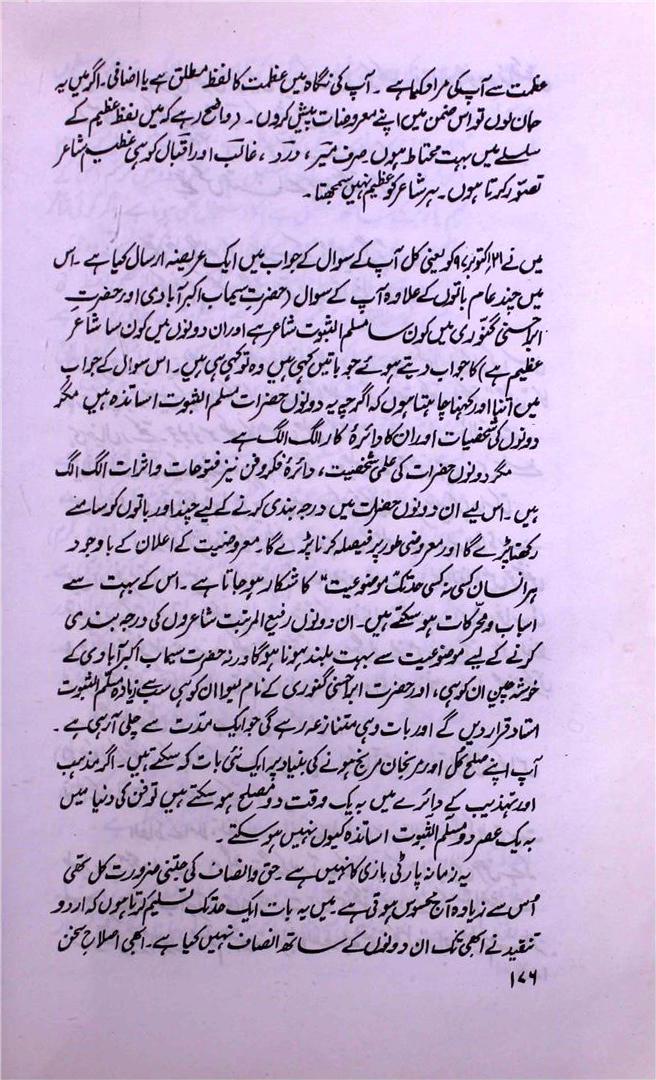 عظمت سے آپ کی مراد کیا ہے ۔ آپ کی نگاہ میں عظمت کا لفظ مطلق ہے یا اضافی ۔ اگر میں یہ
جان لوں تو اس ضمن میں اپنے معروضات پیش کروں ۔ (واضح رہے کہ میں لفظ عظیم کے
سلسلے میں بہت محتاط ہوں صرف میر ، درد ، غالب اور اقبال کو ہی عظیم شاعر
تصور کرتا ہوں ۔ ہر شاعر کو عظیم نہیں سمجھتا ۔
میں نے ۲۱؍ اکتوبر ۹۷ کو یعنی کل آپ کے سوال کے جواب میں ایک عریضہ ارسال کیا ہے ۔ اس
میں چند عام باتوں کے علاوہ آپ کے سوال (حضرت سیماب اکبر آبادی اور حضرت
ابر احسنی گنوری میں کون سا مسلم الثبوت شاعر ہے اور ان دونوں میں کون سا شاعر
عظیم ہے) کا جواب دیتے ہوئے جو باتیں کہی ہیں وہ تو کہی ہی ہیں ۔ اس سوال کے جواب
میں اتنا اور کہنا چاہتا ہوں کہ اگرچہ یہ دونوں حضرات مسلم الثبوت اساتذہ ہیں مگر
دونوں کی شخصیات اور ان کا دائرۂ کار الگ الگ ہے ۔
مگر دونوں حضرات کی علمی شخصیت ، دائرۂ فکر و فن نیز فتوحات و اثرات الگ الگ
ہیں ۔ اس لیے ان دونوں حضرات میں درجہ بندی کرنے کے لیے چند اور باتوں کو سامنے
رکھنا پڑے گا اور معروضی طور پر فیصلہ کرنا پڑے گا ۔ معروضیت کے اعلان کے باوجود
ہر انسان کسی نہ کسی حد تک موضوعیت" کا شکار ہو جاتا ہے ۔ اس کے بہت سے
اسباب و محرکات ہو سکتے ہیں ۔ ان دونوں رفیع المرتبت شاعروں کی درجہ بندی
کرنے کے لیے موضوعیت سے بہت بلند ہونا ہوگا ورنہ حضرت سیماب اکبر آبادی کے
خوشہ چین ان کو ہی ، اور حضرت ابر احسنی گنوری کے نام لیوا ان کو ہی سب سے زیادہ مسلم الثبوت
استاد قرار دیں گے اور بات وہی متنازعہ رہے گی جو ایک مدت سے چلی آ رہی ہے ۔
آپ اپنے صلح کل اور مرنجان مرنج ہونے کی بنیاد پر ایک نئی بات کہہ سکتے ہیں ۔ اگر مذہب
اور تہذیب کے دائرے میں بہ یک وقت دو مصلح ہو سکتے ہیں تو فن کی دنیا میں
بہ یک عصر دو مسلم الثبوت اساتذہ کیوں نہیں ہو سکتے ۔
یہ زمانہ پارٹی بازی کا نہیں ہے ۔ حق و انصاف کی جتنی ضرورت کل تھی
اُس سے زیادہ آج محسوس ہوتی ہے ۔ میں یہ بات ایک حد تک تسلیم کرتا ہوں کہ اردو
تنقید نے ابھی تک ان دونوں کے ساتھ انصاف نہیں کیا ہے ۔ ابھی اصلاح سخن
۱۷۶